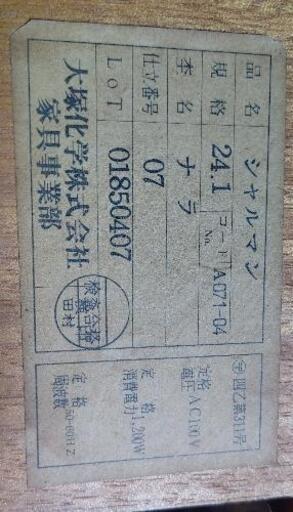 品名 シャルマン
規格 24.1 コードNo. A071-04
杢名 ナラ
仕立番号 07
LoT 01850407
大塚化学株式会社
家具事業部
検査合格
田村
〒四乙第311号
定格電圧 AC100V
定格消費電力 1,200W
定格周波数 50-60HZ